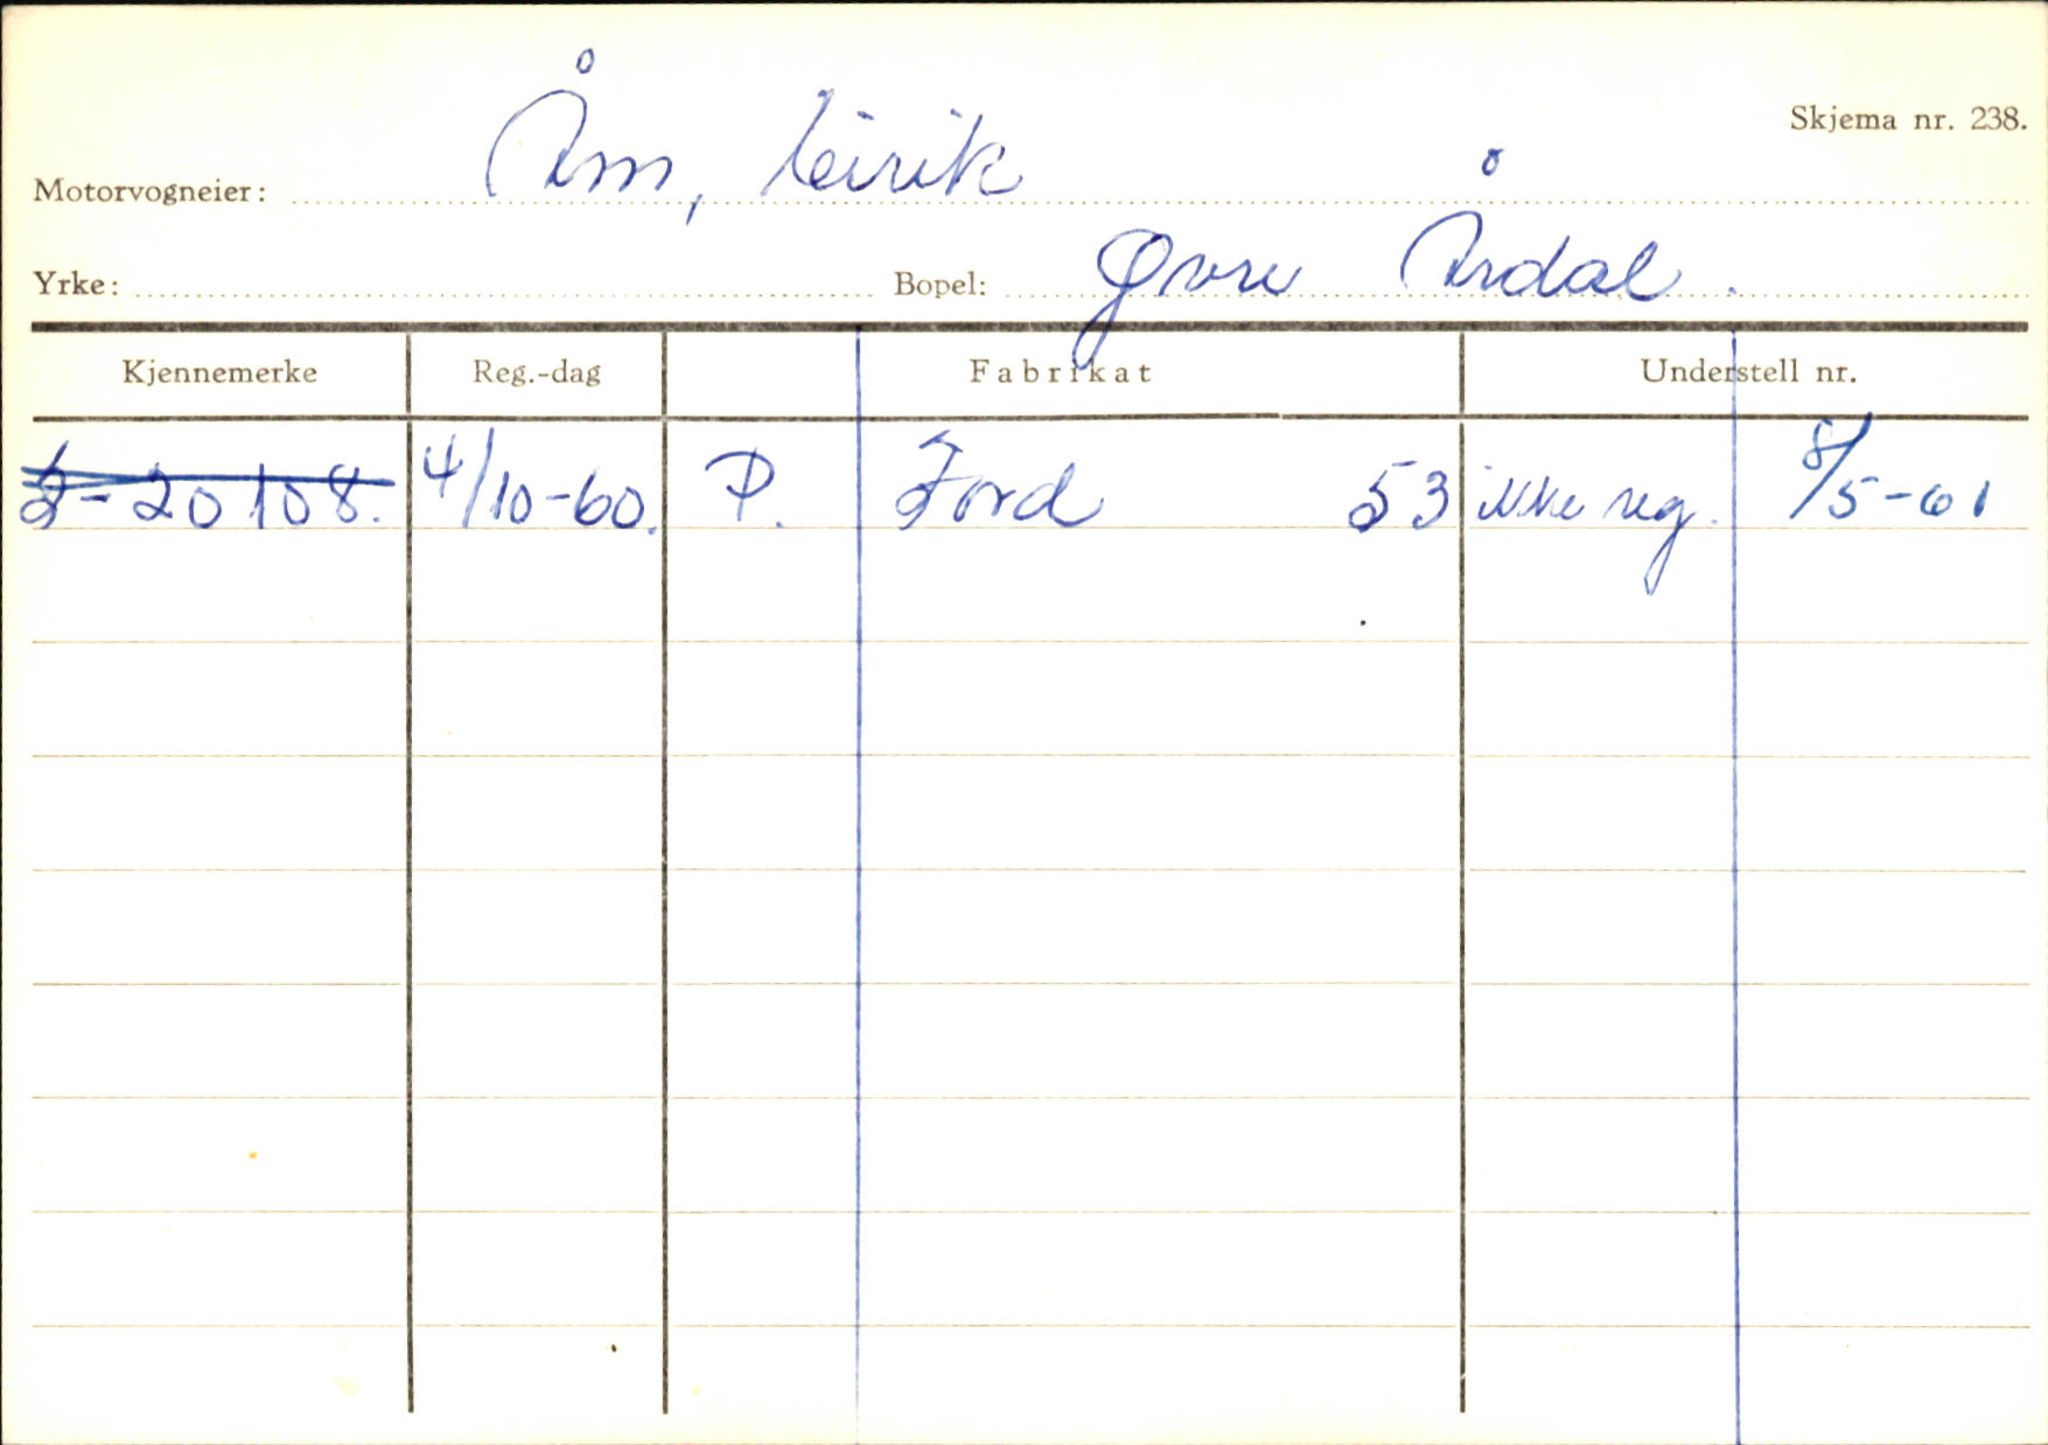 Skjema nr. 238.
Motorvogneier: Åm, Eirik
Yrke: Bopel: Øvre Årdal.
Kjennemerke Reg.-dag Fabrikat Understell nr.
S-20108. 4/10-60. P. Ford 53 ikke reg. 8/5-61